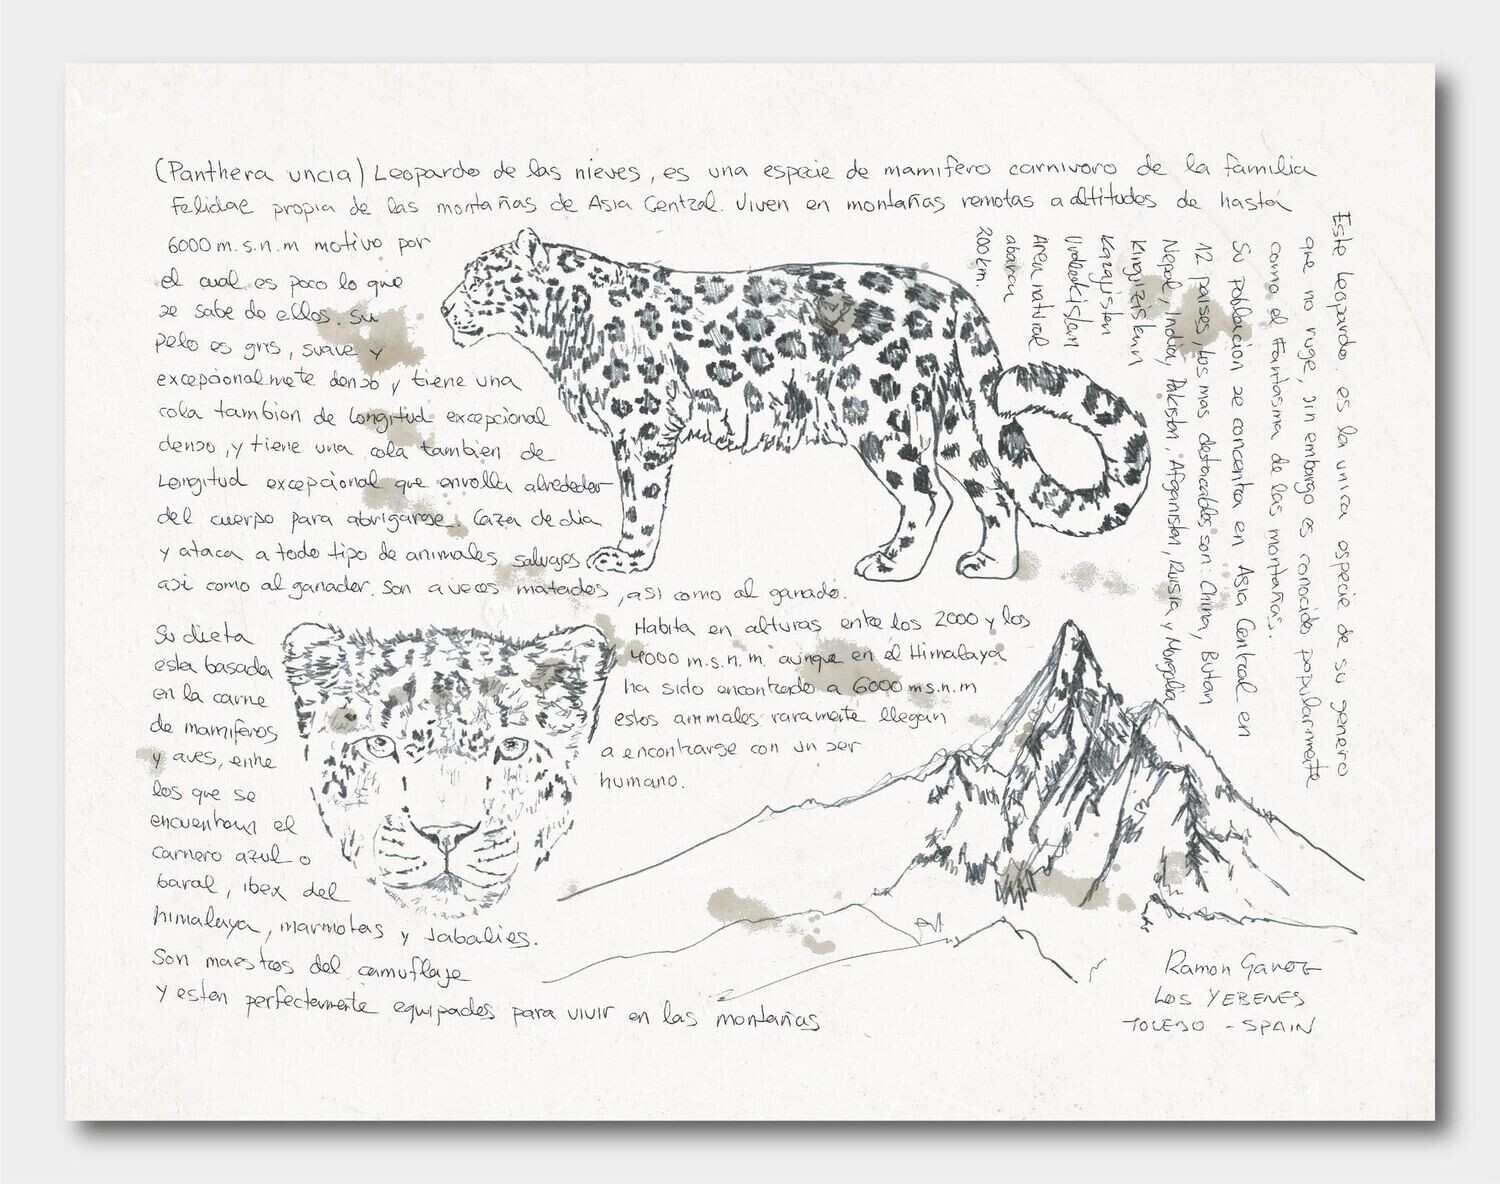 (Panthera uncia) Leopardo de las nieves, es una especie de mamifero carnivoro de la familia
Felidae propia de las montañas de Asia Central. Viven en montañas remotas a altitudes de hasta
6000 m.s.n.m motivo por
el cual es poco lo que
se sabe de ellos. Su
pelo es gris, suave y
excepcionalmete denso y tiene una
cola tambien de longitud excepcional
denso, y tiene una cola tambien de
Longitud excepcional que enrolla alrededor
del cuerpo para abrigarse. Caza de dia
y ataca a todo tipo de animales salvajes
asi como al ganader. Son a veces matados, asi como al ganado.
Su dieta
esta basada
en la carne
de mamiferos
y aves, entre
los que se
encuentran el
carnero azul o
baral, ibex del
himalaya, marmotas y Jabalies.
Son maestros del camuflaje
y estan perfectamente equipados para vivir en las montañas
Habita en alturas entre los 2000 y los
4000 m.s.n.m. aunque en el Himalaya
ha sido encontrado a 6000 m.s.n.m
estos animales raramente llegan
a encontrarse con un ser
humano.
Este leopardo es la unica especie de su genero
que no ruge, sin embargo es conocido popularmente
como el Fantasma de las montañas.
Su poblacion se concentra en Asia Central en
12 paises, los mas destacables son: China, Butan
Nepal, India, Pakistan, Afganistan, Rusia y Mongolia
Kirgizistan
Kazajistan
Urdekistan
Area natural
abarca
200 km.
Ramon
Los YEBENES
TOLEDO - SPAIN